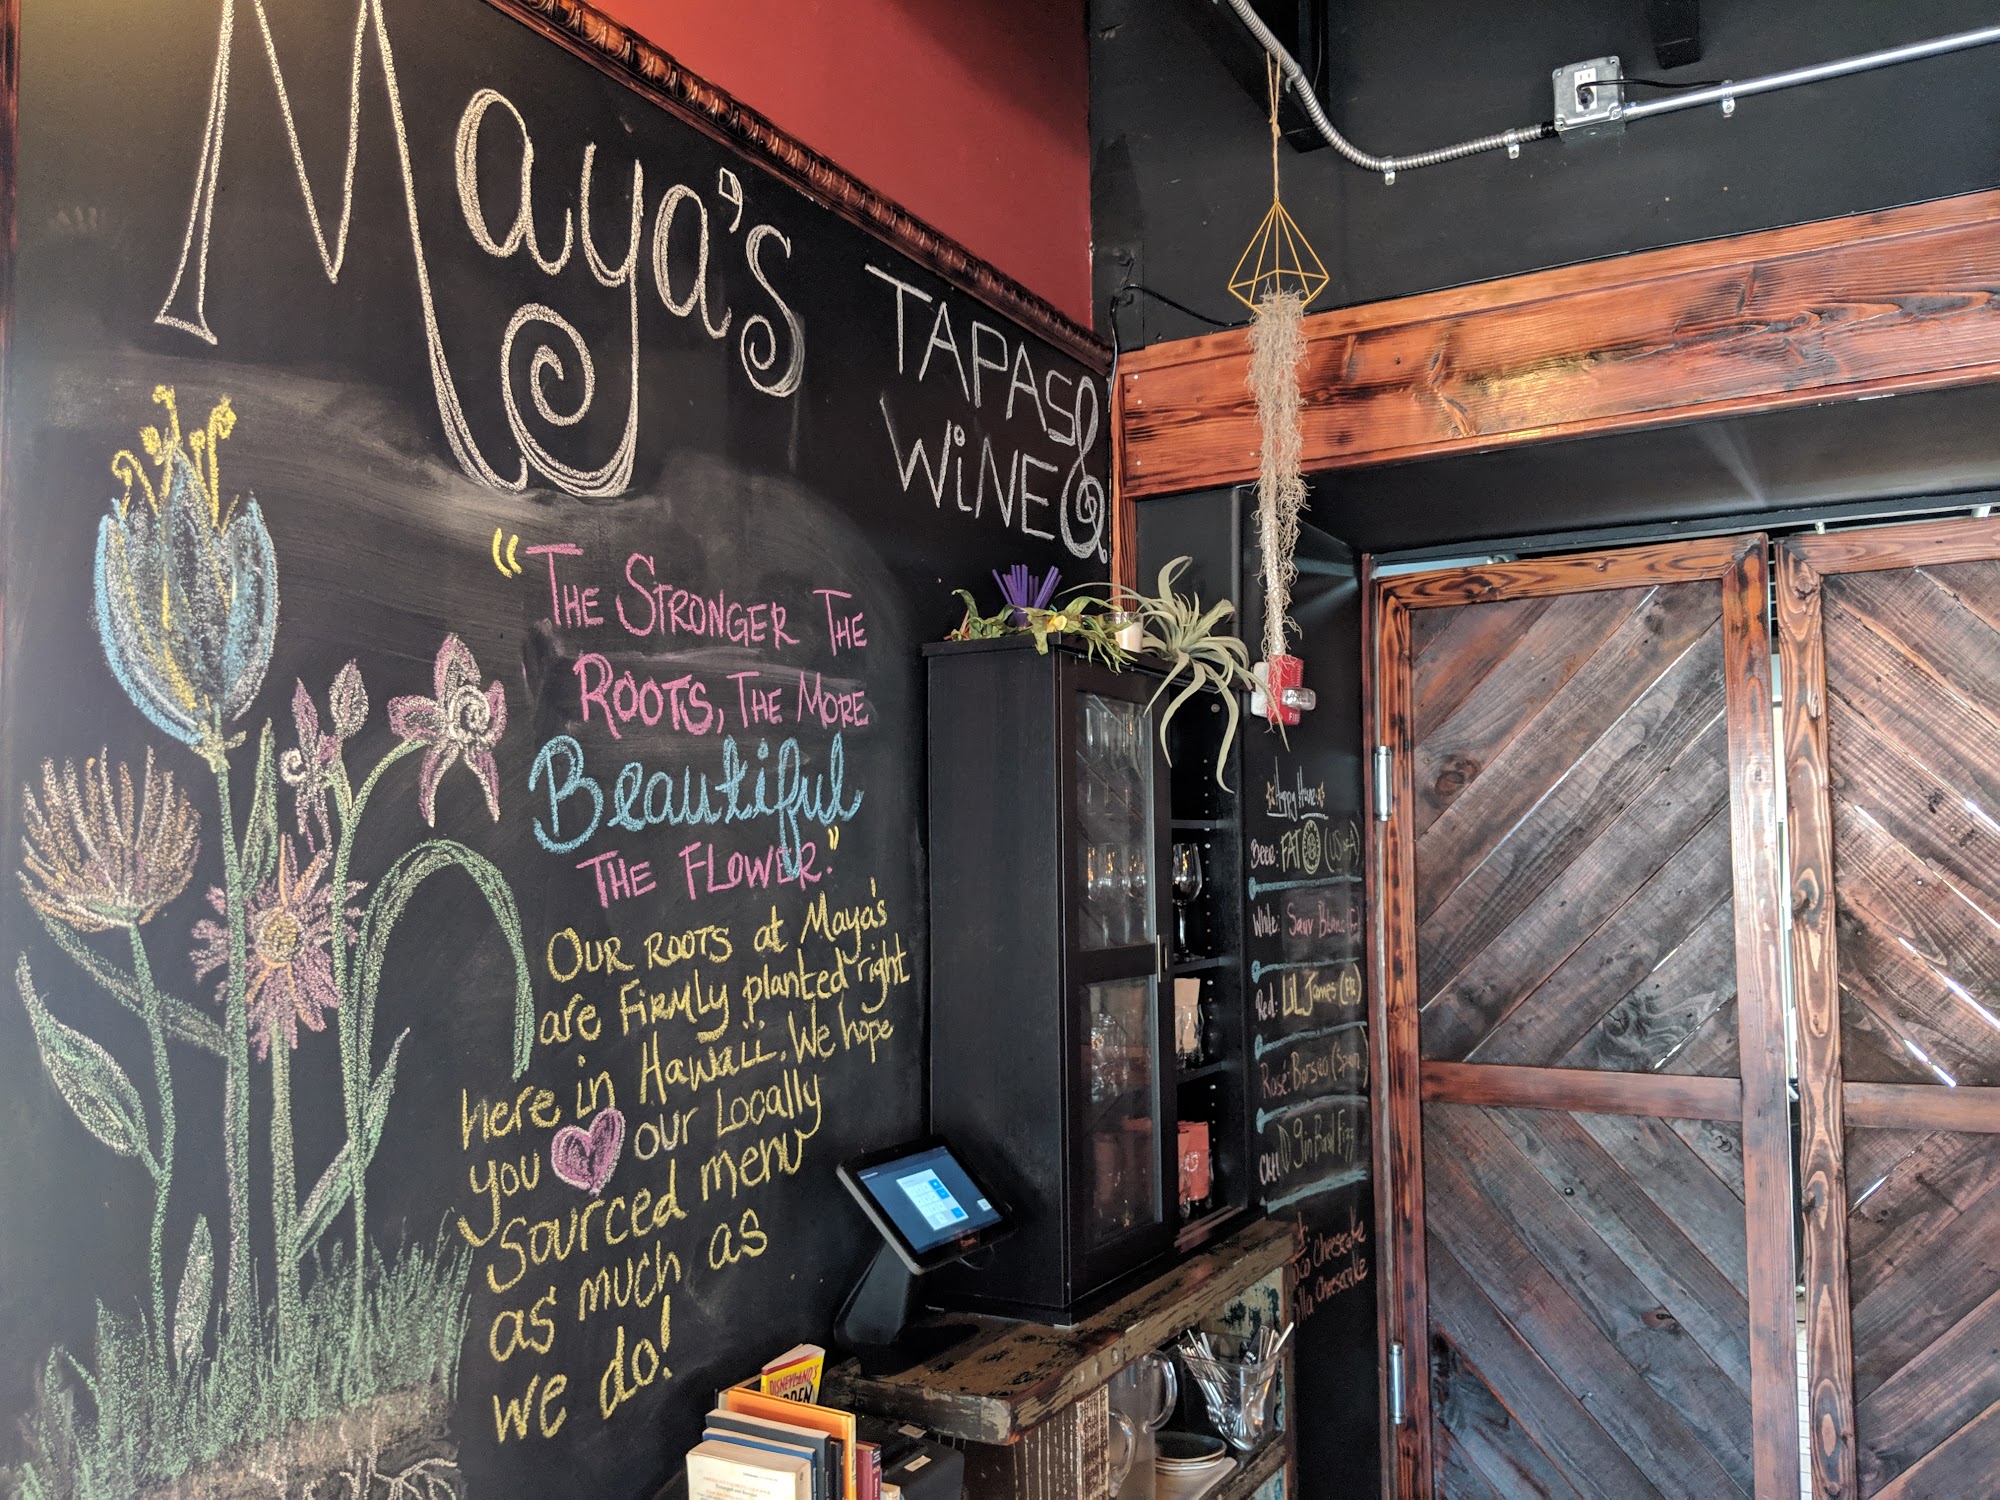 Maya's
TAPAS &
WiNE
"THE STRONGER THE
ROOTS, THE MORE
Beautiful
THE FLOWER."
OUR ROOTS at Maya's
are Firmly planted right
here in Hawaii. We hope
you our Locally
Sourced menu
as much as
we do!
Happy Hour
Beer: FAT (USA)
White: Sauv Blanc
Red: LiL James
Rosé: Borsao (Spain
Gin Basil Fizz
Cheesecake
Cheesecake
DISNEYLAND'S
FIRE